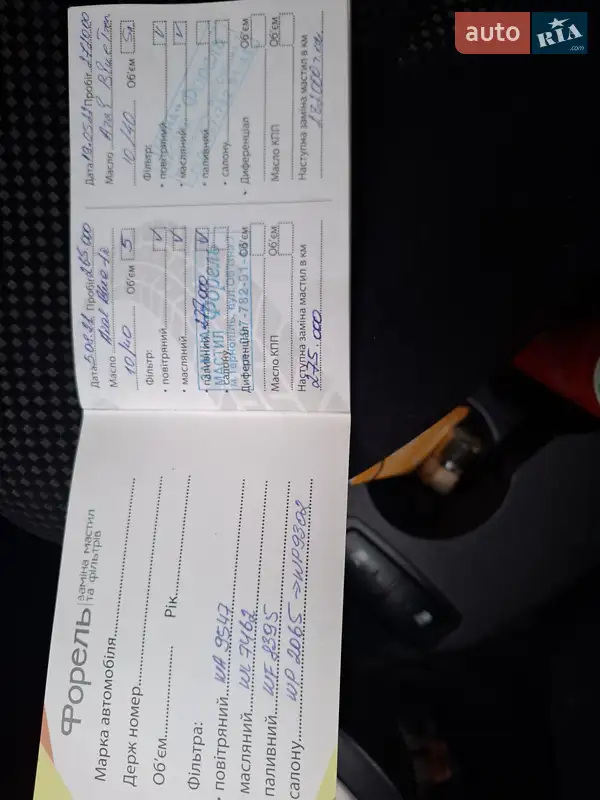 auto RIA .com
Форель заміна мастил та фільтрів
Марка автомобіля
Держ номер
Об'єм Рік
Фільтра:
• повітряний WA 9547
масляний WL 7462
паливний WF 8395
салону WP 2065 → WP9302
Дата Пробіг 265.000
Масло
10/40 Об'єм 5
Фільтр:
• повітряний V
• масляний V
• паливний V
• салону
Диференціал Об'єм
Масло КПП Об'єм
Наступна заміна мастил в км
275.000
ЗАМІНА МАСТИЛ Форель
Дата Пробіг
Масло
10/40 Об'єм 5л
Фільтр:
• повітряний V
• масляний V
• паливний
• салону
• Диференціал Об'єм
Масло КПП Об'єм
Наступна заміна мастил в км